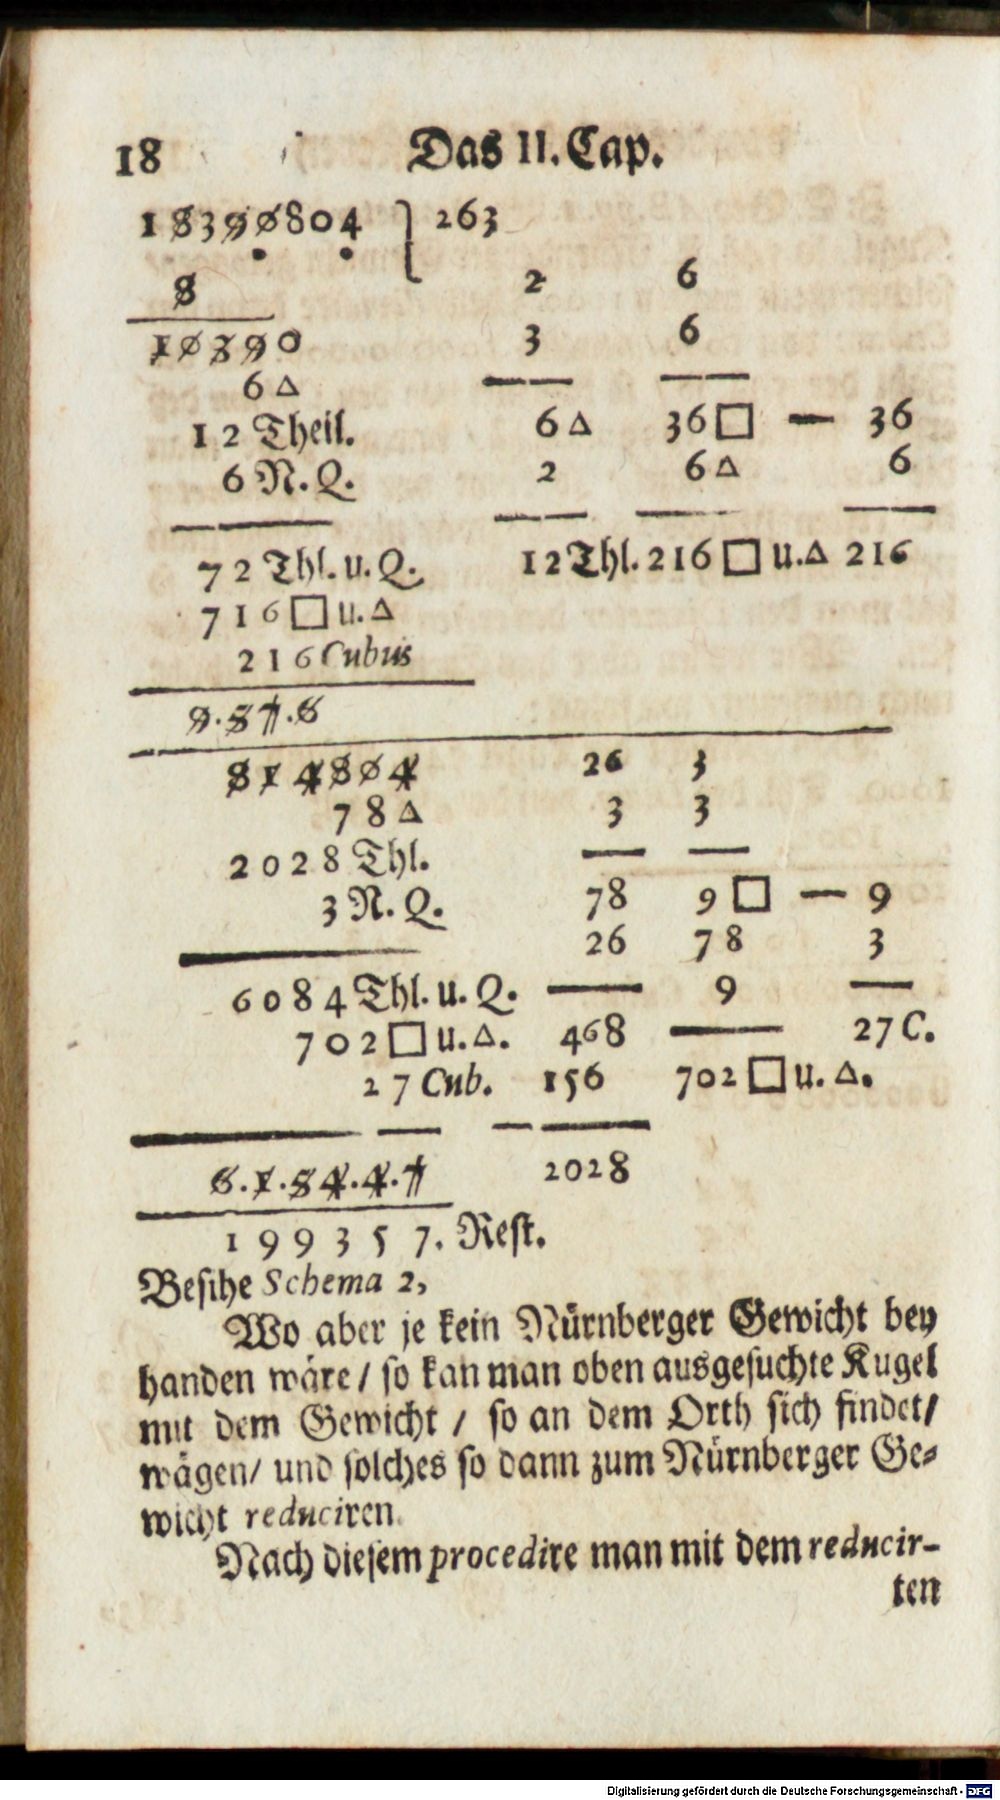 18 Das II. Cap.
18390804 263
8 2 6
10390 3 6
6 △
12 Theil. 6 △ 36 □ — 36
6 N. Q. 2 6 △ 6
72 Thl. u. Q. 12 Thl. 216 □ u. △ 216
716 □ u. △
216 Cubus
9.57.6
814804 26 3
78 △ 3 3
2028 Thl.
3 N. Q. 78 9 □ — 9
26 78 3
6084 Thl. u. Q. 9
702 □ u. △. 468 27 C.
27 Cub. 156 702 □ u. △.
6.1.54.4.7 2028
199357. Rest.
Besihe Schema 2,
Wo aber je kein Nürnberger Gewicht bey
handen wäre / so kan man oben ausgesuchte Kugel
mit dem Gewicht / so an dem Orth sich findet/
wägen/ und solches so dann zum Nürnberger Ge-
wicht reduciren.
Nach diesem procedire man mit dem reducir-
ten
Digitalisierung gefördert durch die Deutsche Forschungsgemeinschaft - DFG